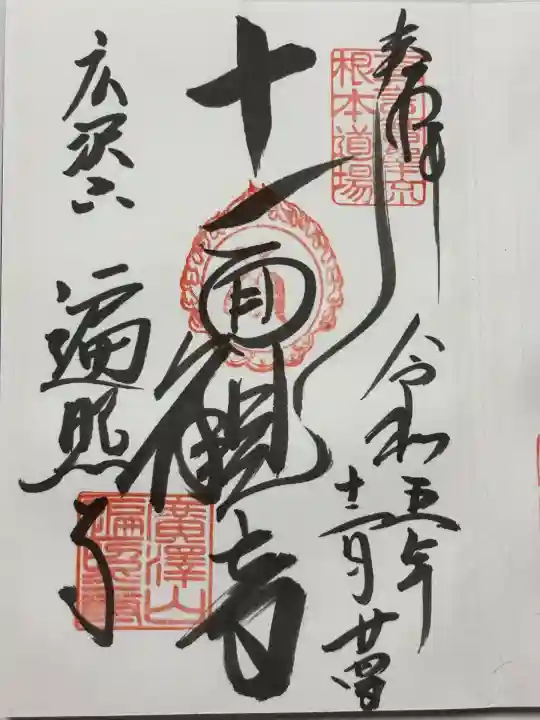 奉拝
令和五年
十二月廿四日
十一面観音
広沢山
遍照寺
根本道場
廣澤山
遍照寺